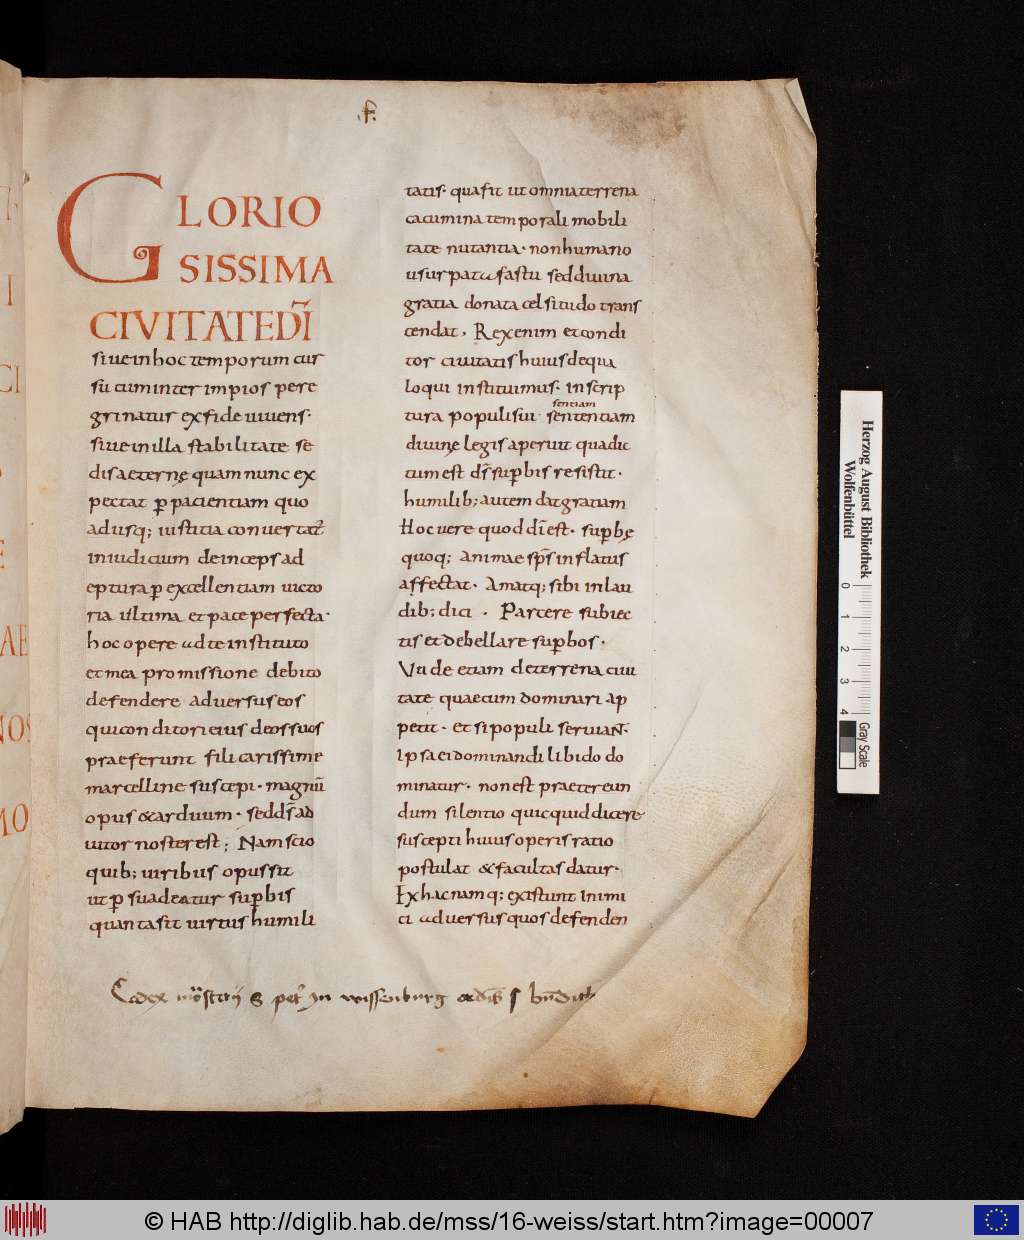 GLORIO
SISSIMA
CIVITATEDI
siue in hoc temporum cur
su cum inter impios pere
grinatur ex fide uiuens·
siue in illa stabilitate se
dis aeternę quam nunc ex
pectat p̲ pacientiam quo
adusq; iustitia conuertat᷑
in iudicium deinceps ad
eptura p̲ excellentiam uicto
ria ultima et pace perfecta·
hoc opere ad te instituto
et mea promissione debito
defendere aduersus eos
qui conditori eius deos suos
praeferunt fili carissime
marcelline suscepi· magnū
opus & arduum· sed d̄s ad
iutor noster est; Nam scio
quib; uiribus opus sit
ut p̲suadeatur sup̲bis
quanta sit uirtus humili
tatis· qua fit ut omnia terrena
cacumina temporali mobili
tate nutantia· non humano
usurpata fastu sed diuina
gratia donata celsitudo trans
cendat, Rex enim et condi
tor ciuitatis huius de qua
loqui instituimus· in scrip
tura populi sui sententiam
sentiam
diuinę legis aperuit qua dic
tum est d̄s sup̲bis resistit·
humilib; autem dat gratiam
Hoc uere quod dī est· sup̲bę
quoq; animae sp̄s inflatus
affectat· Amatq; sibi in lau
dib; dici· Parcere subiec
tis et debellare sup̲bos·
Vnde etiam de terrena ciui
tate quae cum dominari ap
petit· et si populi seruiant·
Ipsa ei dominandi libido do
minatur· non est praetereun
dum silentio quicquid dicere
suscepti huius operis ratio
postulat & facultas datur·
Ex hac namq; existunt inimi
ci aduersus quos defenden
Codex mōsterij S petri in wissenburg ordīs s bn̄dicti
Herzog August Bibliothek
Wolfenbüttel
0 1 2 3 4
Gray Scale
© HAB http://diglib.hab.de/mss/16-weiss/start.htm?image=00007